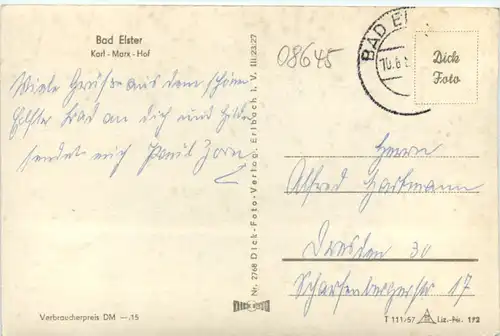 Bad Elster
Karl - Marx - Hof
Viele Grüße aus dem schönen
Elster Bad an dich und Hilde
sendet euch Paul Zorn
08645
BAD EL
10.6.
Dick
Foto
Nr. 2768 Dick-Foto-Verlag, Erlbach i. V. III:23:27
Herrn
Alfred Hartmann
Dresden 30
Scharfenbergerstr 17
Verbraucherpreis DM —.15
T 111/57 Liz.-Nr. 172